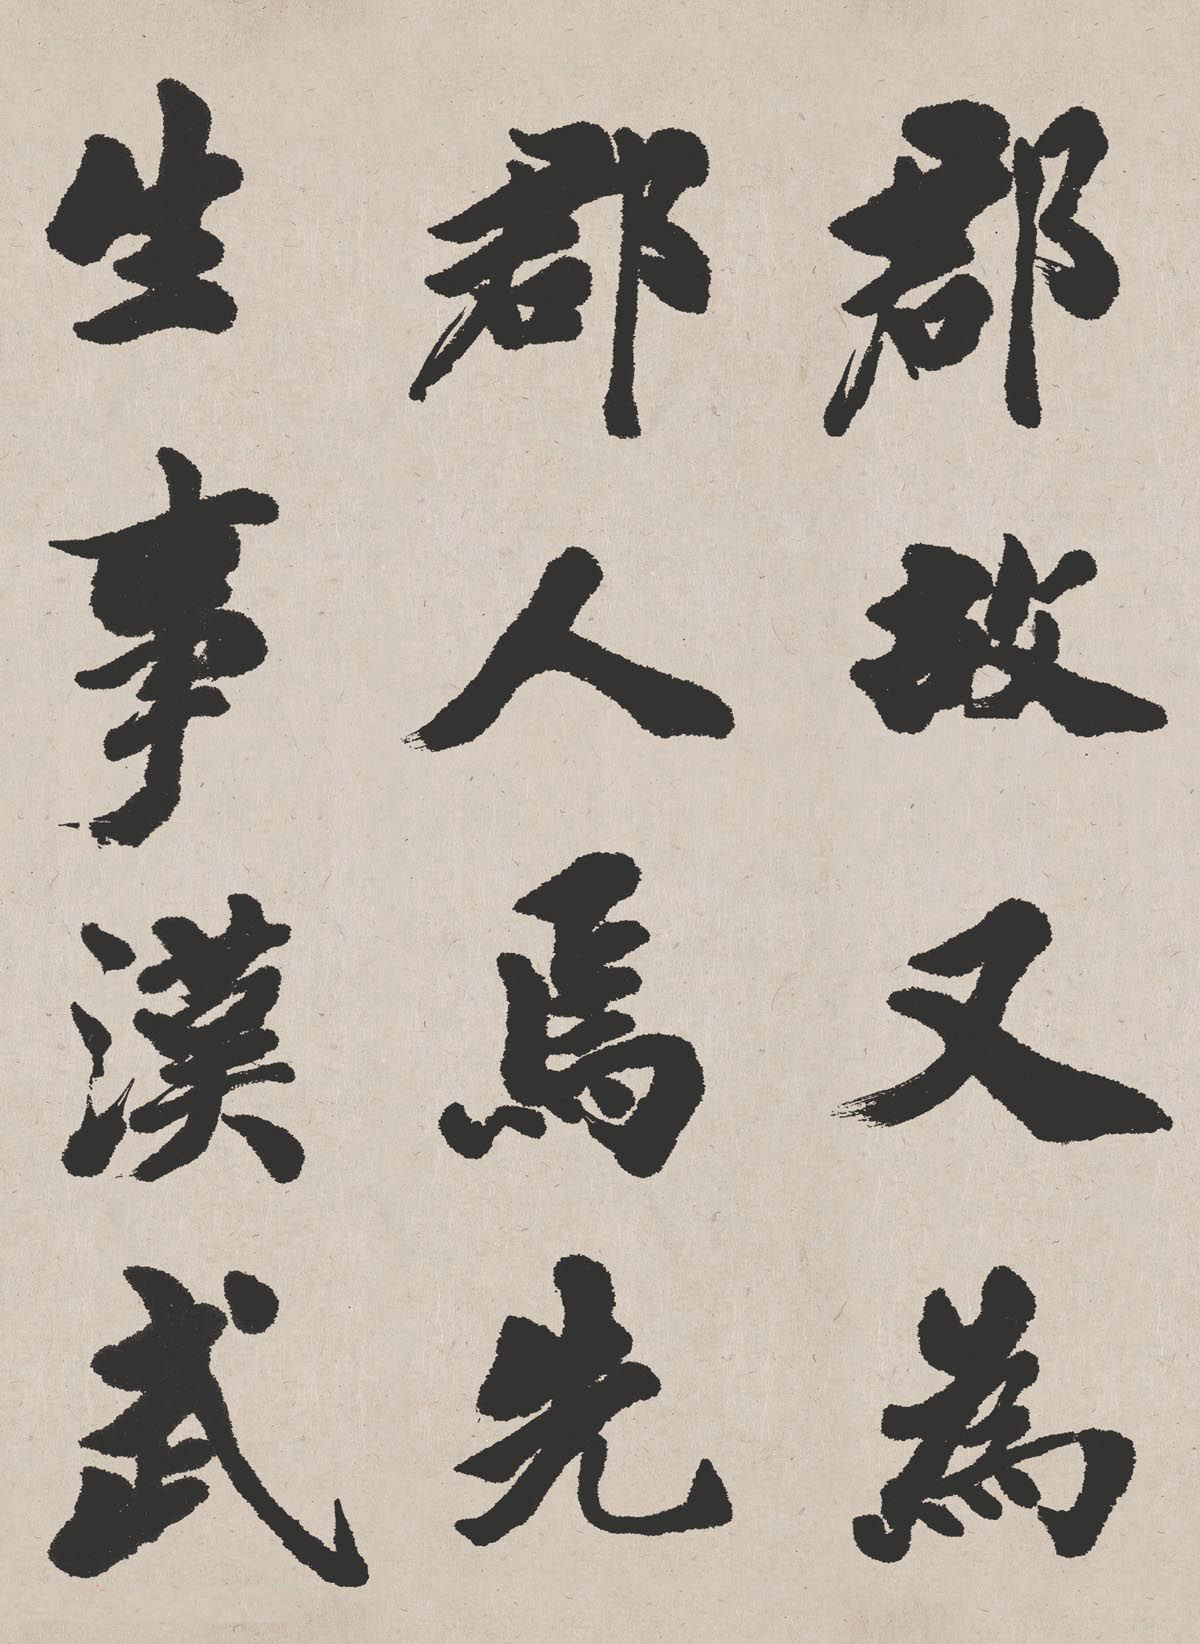 郡故又為
郡人焉先
生事漢武